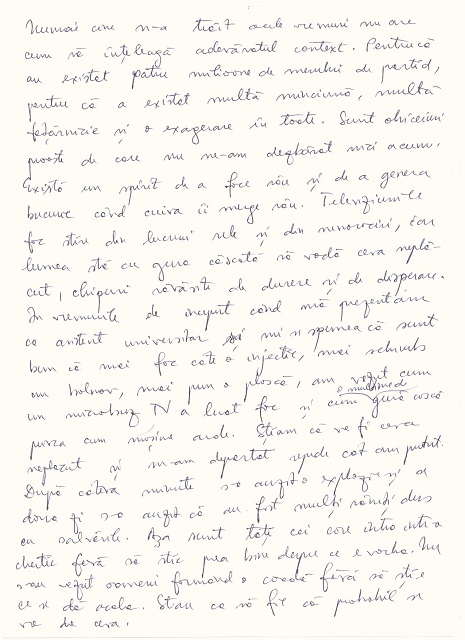 Numai cine n-a trăit acele vremuri nu are
cum să înțeleagă adevăratul context. Pentru că
au existat patru milioane de membri de partid,
pentru că a existat multă minciună, multă
fățărnicie și o exagerare în toate. Sunt obiceiuri
proaste de care nu ne-am dezbărat nici acum.
Există un spirit de a face rău și de a genera
bucurie când cuiva îi merge rău. Televiziunile
fac știre din lucruri rele și din nenorociri, iar
lumea stă cu gura căscată să vadă ceva neplă-
cut, chipuri răvășite de durere și de disperare.
În vremurile de început când mă prezentam
ca asistent universitar și mi se spunea că sunt
bun să mai fac câte o injecție, mai schimb
un bolnav, mai pun o ploscă, am văzut cum
un microbuz TV a luat foc și cum o mulțime de gură cască
privea cum mașina arde. Știam că va fi ceva
neplăcut și m-am depărtat repede cât am putut.
După câteva minute s-a auzit o explozie și a
doua zi s-a auzit că au fost mulți răniți duși
cu salvările. Așa sunt toți cei care intră într-o
chestie fără să știe prea bine despre ce e vorba. Nu
s-au văzut oameni formând o coadă fără să știe
ce se dă acolo. Stau ca să fie că probabil se
va da ceva.